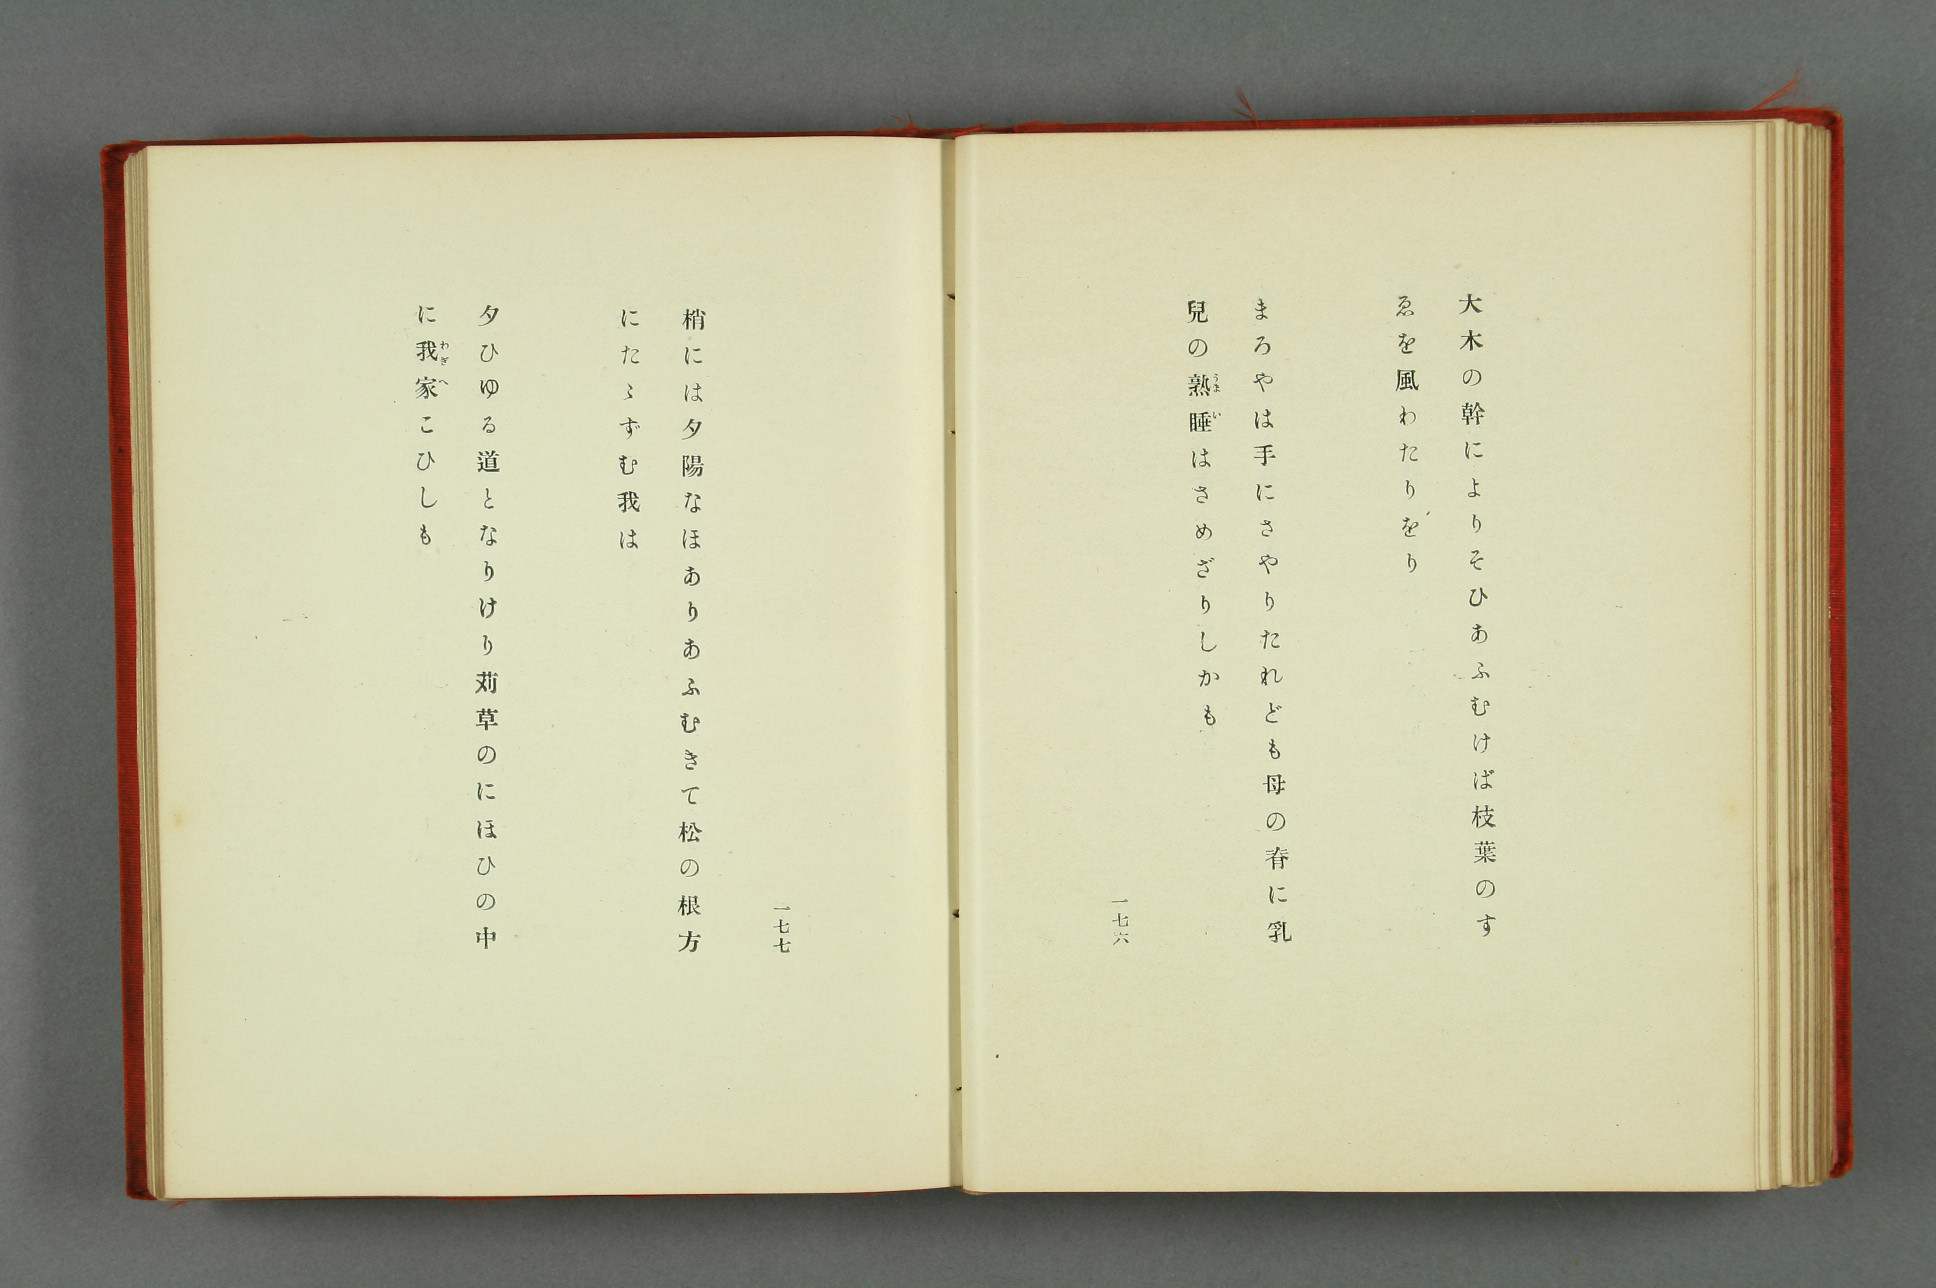 大木の幹によりそひあふむけば枝葉のす
ゑを風わたりをり
まろやは手にさやりたれども母の脊に乳
兒の熟睡はさめざりしかも
一七六
一七七
梢には夕陽なほありあふむきて松の根方
にたゝずむ我は
夕ひゆる道となりけり苅草のにほひの中
に我家こひしも